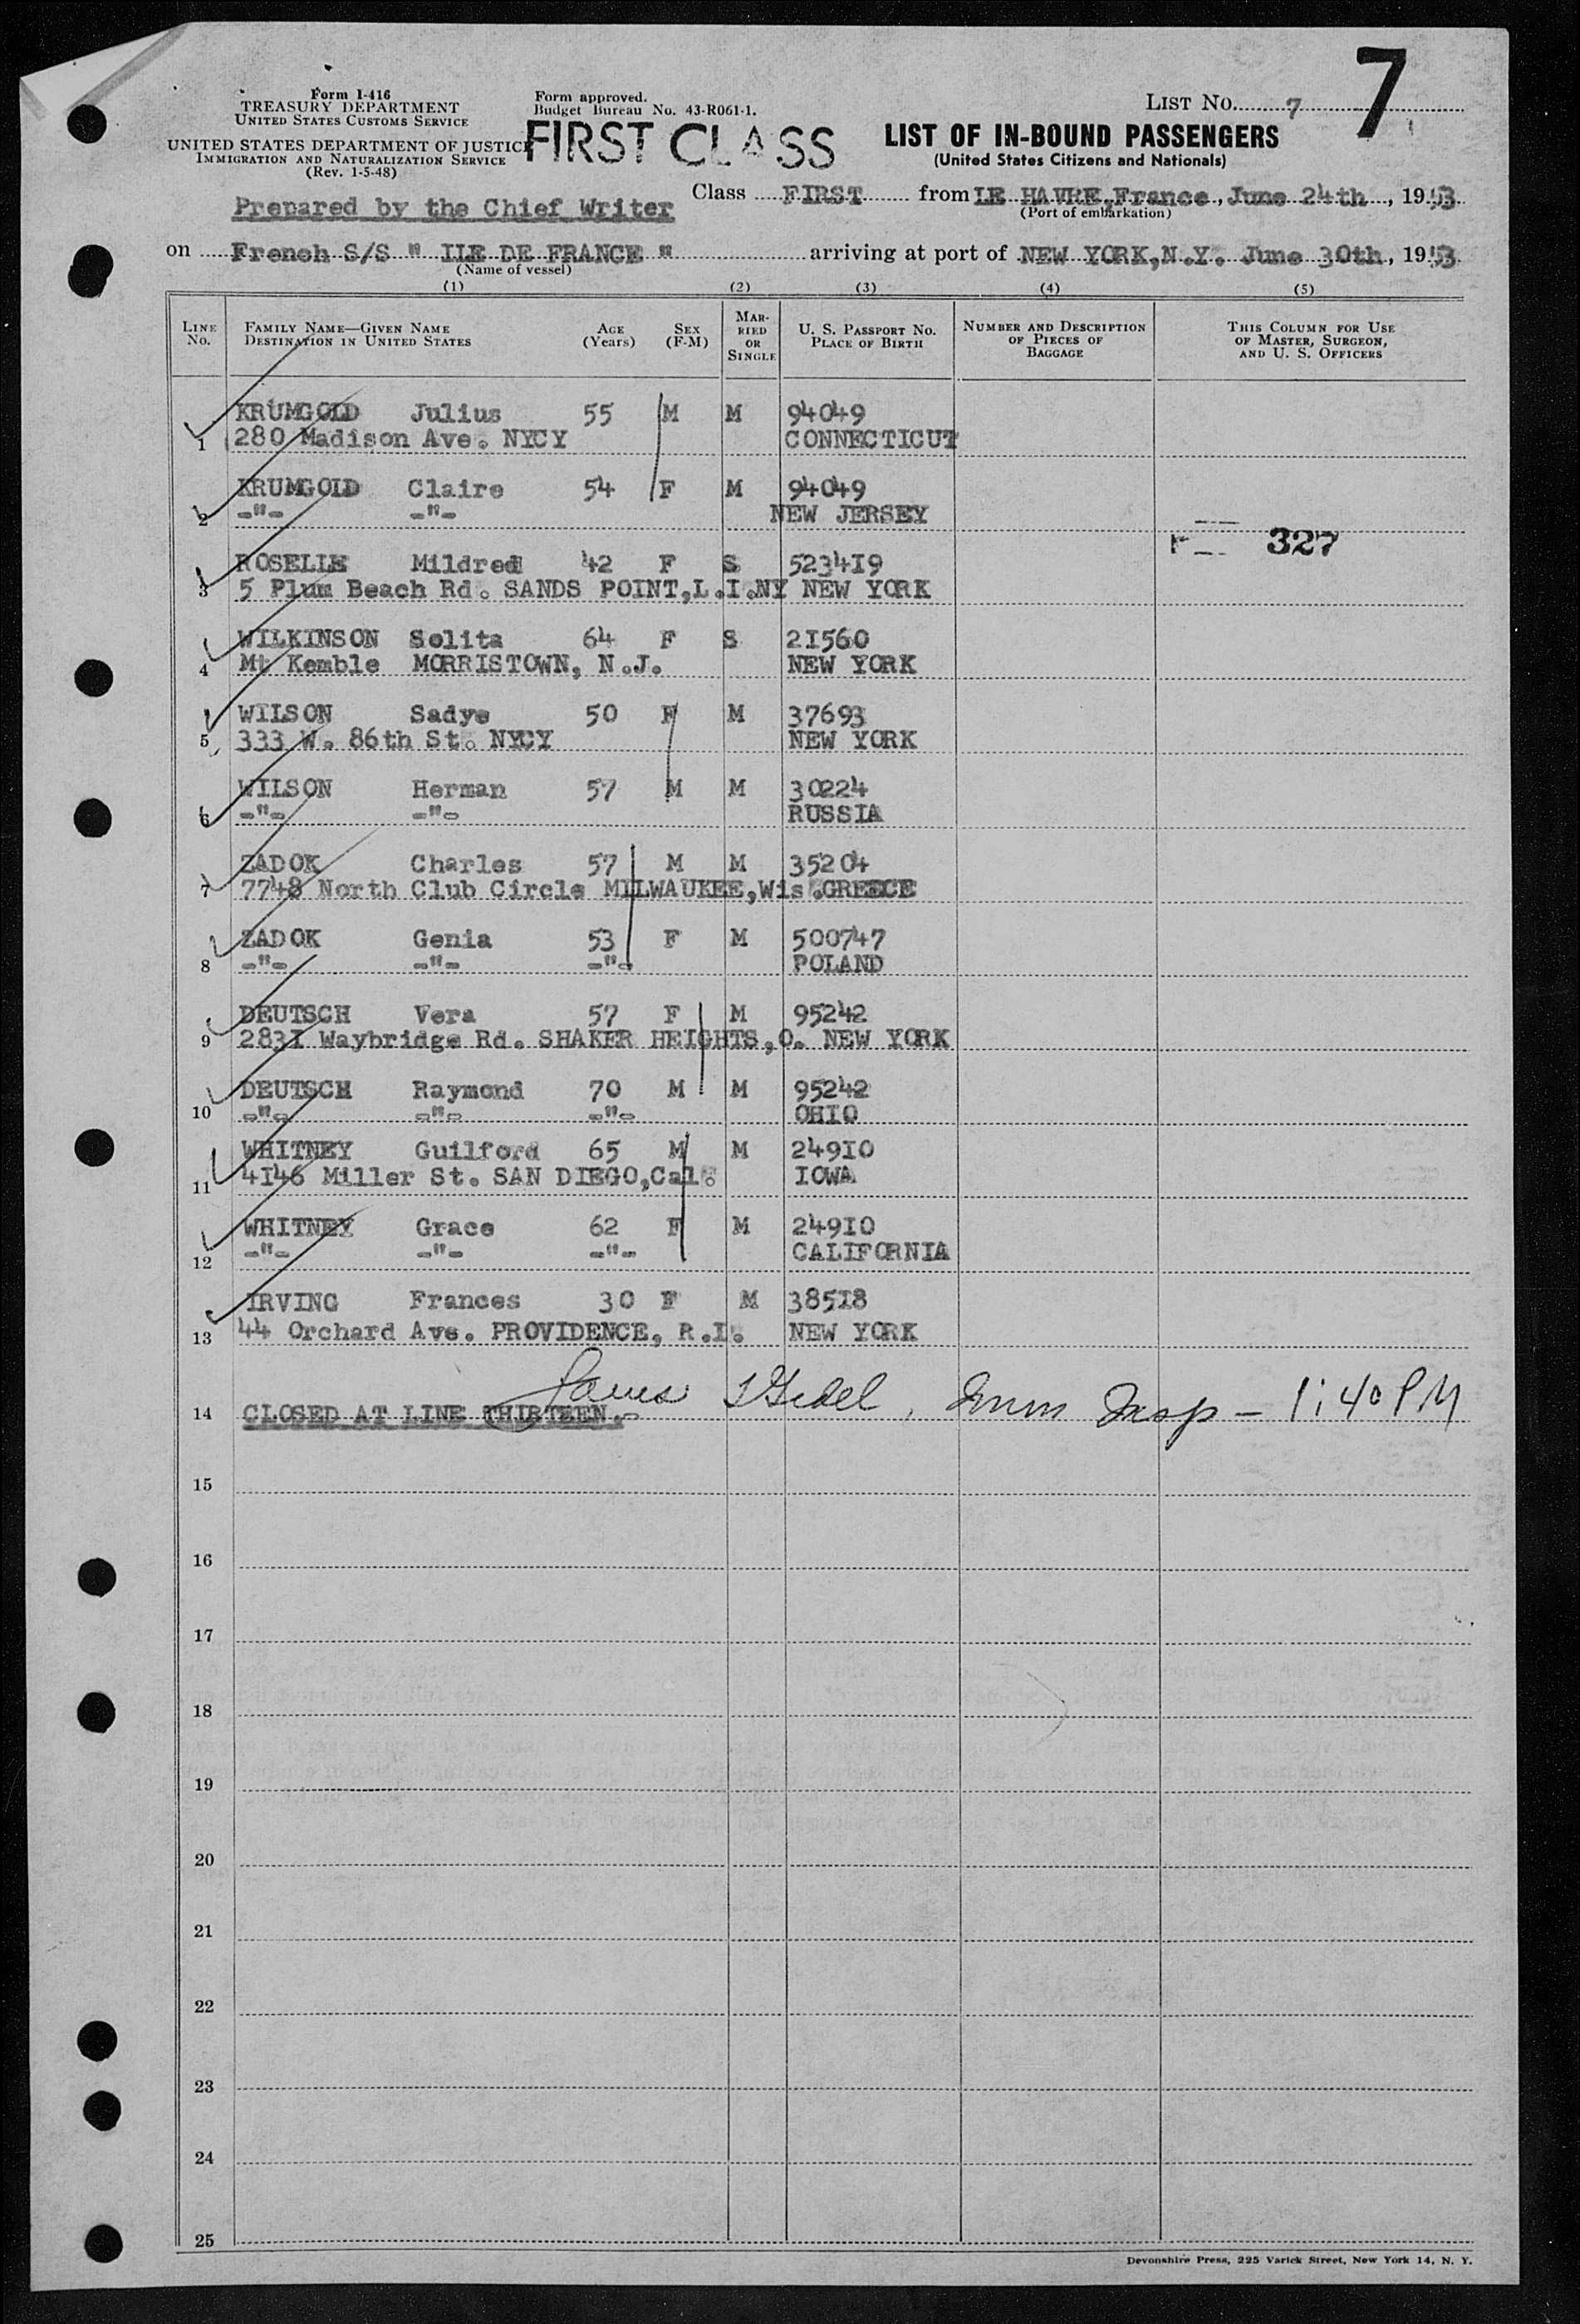 7
Form I-416
TREASURY DEPARTMENT
UNITED STATES CUSTOMS SERVICE
UNITED STATES DEPARTMENT OF JUSTICE
IMMIGRATION AND NATURALIZATION SERVICE
(Rev. 1-5-48)
Form approved.
Budget Bureau No. 43-R061-1.
FIRST CLASS
LIST NO. 7
LIST OF IN-BOUND PASSENGERS
(United States Citizens and Nationals)
Prepared by the Chief Writer
Class FIRST from LE HAVRE, France, June 24th, 1953
(Port of embarkation)
on French S/S " ILE DE FRANCE " arriving at port of NEW YORK, N.Y. June 30th, 1953
(Name of vessel)
(1) (2) (3) (4) (5)
LINE NO.
FAMILY NAME—GIVEN NAME
DESTINATION IN UNITED STATES
AGE (Years)
SEX (F-M)
MARRIED OR SINGLE
U. S. PASSPORT NO.
PLACE OF BIRTH
NUMBER AND DESCRIPTION OF PIECES OF BAGGAGE
THIS COLUMN FOR USE OF MASTER, SURGEON, AND U. S. OFFICERS
KRUMGOLD Julius 55 M M 94049
1 280 Madison Ave. NYCY CONNECTICUT
KRUMGOLD Claire 54 F M 94049
2 -"- -"- NEW JERSEY
327
ROSELLE Mildred 42 F S 523419
3 5 Plum Beach Rd. SANDS POINT, L.I.NY NEW YORK
WILKINSON Solita 64 F S 21560
4 Mt Kemble MORRISTOWN, N.J. NEW YORK
WILSON Sadye 50 F M 37693
5 333 W. 86th St. NYCY NEW YORK
WILSON Herman 57 M M 30224
6 -"- -"- RUSSIA
ZADOK Charles 57 M M 35204
7 7748 North Club Circle MILWAUKEE, Wis.GREECE
ZADOK Genia 53 F M 500747
8 -"- -"- -"- POLAND
DEUTSCH Vera 57 F M 95242
9 2831 Waybridge Rd. SHAKER HEIGHTS, O. NEW YORK
DEUTSCH Raymond 70 M M 95242
10 -"- -"- -"- OHIO
WHITNEY Guilford 65 M M 24910
11 4146 Miller St. SAN DIEGO, Cal. IOWA
WHITNEY Grace 62 F M 24910
12 -"- -"- -"- CALIFORNIA
IRVING Frances 30 F M 38518
13 44 Orchard Ave. PROVIDENCE, R.I. NEW YORK
14 CLOSED AT LINE THIRTEEN.- James Imm Insp - 1:40 PM
15
16
17
18
19
20
21
22
23
24
25
Devonshire Press, 225 Varick Street, New York 14, N. Y.